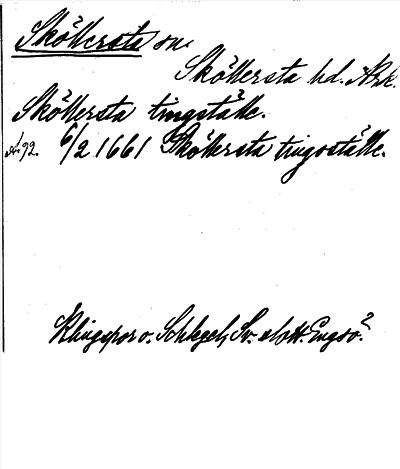 Sköllersta sn
Sköllersta hd. Nrk.
Sköllersta tingställe.
s. 92. 6/2 1661 Sköllersta tingställe.
Klingspor o. Schlegel, Sv. slott. Engsö.